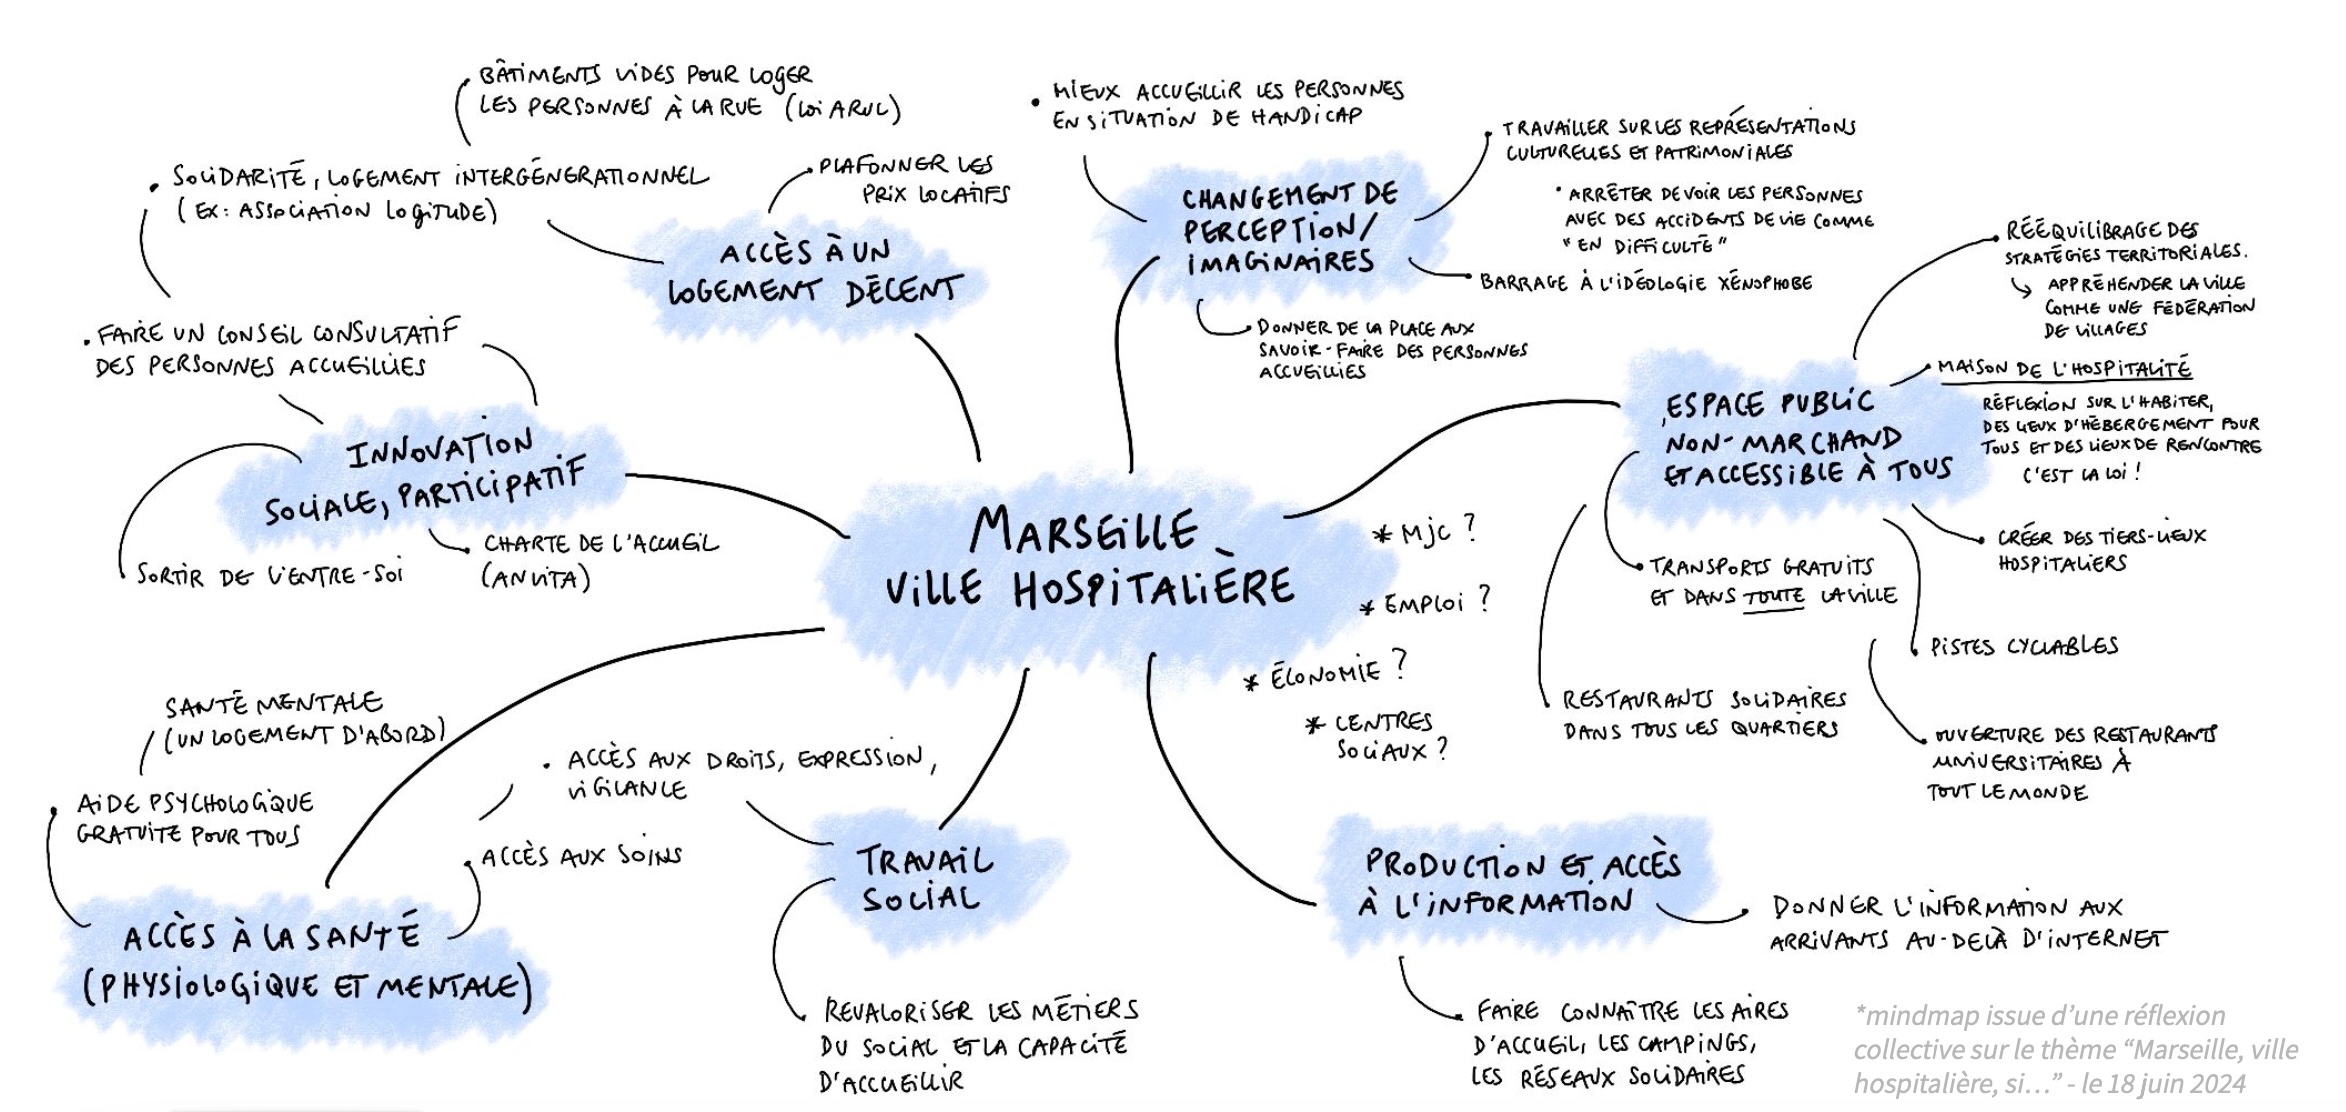 BÂTIMENTS VIDES POUR LOGER
LES PERSONNES À LA RUE (LOI ARUL)
SOLIDARITÉ, LOGEMENT INTERGÉNÉRATIONNEL
(EX: ASSOCIATION LOGITUDE)
PLAFONNER LES
PRIX LOCATIFS
ACCÈS À UN
LOGEMENT DÉCENT
MIEUX ACCUEILLIR LES PERSONNES
EN SITUATION DE HANDICAP
CHANGEMENT DE
PERCEPTION/
IMAGINAIRES
TRAVAILLER SUR LES REPRÉSENTATIONS
CULTURELLES ET PATRIMONIALES
• ARRÊTER DE VOIR LES PERSONNES
AVEC DES ACCIDENTS DE VIE COMME
"EN DIFFICULTÉ"
BARRAGE À L'IDÉOLOGIE XÉNOPHOBE
DONNER DE LA PLACE AUX
SAVOIR-FAIRE DES PERSONNES
ACCUEILLIES
RÉÉQUILIBRAGE DES
STRATÉGIES TERRITORIALES.
↳ APPRÉHENDER LA VILLE
COMME UNE FÉDÉRATION
DE VILLAGES
MAISON DE L'HOSPITALITÉ
RÉFLEXION SUR L'HABITER,
DES LIEUX D'HÉBERGEMENT POUR
TOUS ET DES LIEUX DE RENCONTRE
C'EST LA LOI !
ESPACE PUBLIC
NON-MARCHAND
ET ACCESSIBLE À TOUS
CRÉER DES TIERS-LIEUX
HOSPITALIERS
TRANSPORTS GRATUITS
ET DANS TOUTE LA VILLE
PISTES CYCLABLES
RESTAURANTS SOLIDAIRES
DANS TOUS LES QUARTIERS
OUVERTURE DES RESTAURANTS
UNIVERSITAIRES À
TOUT LE MONDE
FAIRE UN CONSEIL CONSULTATIF
DES PERSONNES ACCUEILLIES
INNOVATION
SOCIALE, PARTICIPATIF
SORTIR DE L'ENTRE-SOI
CHARTE DE L'ACCUEIL
(ANVITA)
MARSEILLE
VILLE HOSPITALIÈRE
* MJC ?
* EMPLOI ?
* ÉCONOMIE ?
* CENTRES
SOCIAUX ?
SANTÉ MENTALE
(UN LOGEMENT D'ABORD)
AIDE PSYCHOLOGIQUE
GRATUITE POUR TOUS
ACCÈS AUX SOINS
ACCÈS À LA SANTÉ
(PHYSIOLOGIQUE ET MENTALE)
ACCÈS AUX DROITS, EXPRESSION,
VIGILANCE
TRAVAIL
SOCIAL
REVALORISER LES MÉTIERS
DU SOCIAL ET LA CAPACITÉ
D'ACCUEILLIR
PRODUCTION ET ACCÈS
À L'INFORMATION
DONNER L'INFORMATION AUX
ARRIVANTS AU-DELÀ D'INTERNET
FAIRE CONNAÎTRE LES AIRES
D'ACCUEIL, LES CAMPINGS,
LES RÉSEAUX SOLIDAIRES
*mindmap issue d'une réflexion
collective sur le thème "Marseille, ville
hospitalière, si…" - le 18 juin 2024